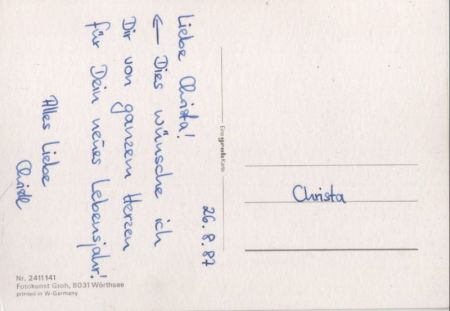 Liebe Christa!
← Dies wünsche ich
Dir von ganzem Herzen
für Dein neues Lebensjahr!
Alles Liebe
26.8.87
Christa
Nr. 2411141
Fotokunst Groh, 8031 Wörthsee
printed in W-Germany